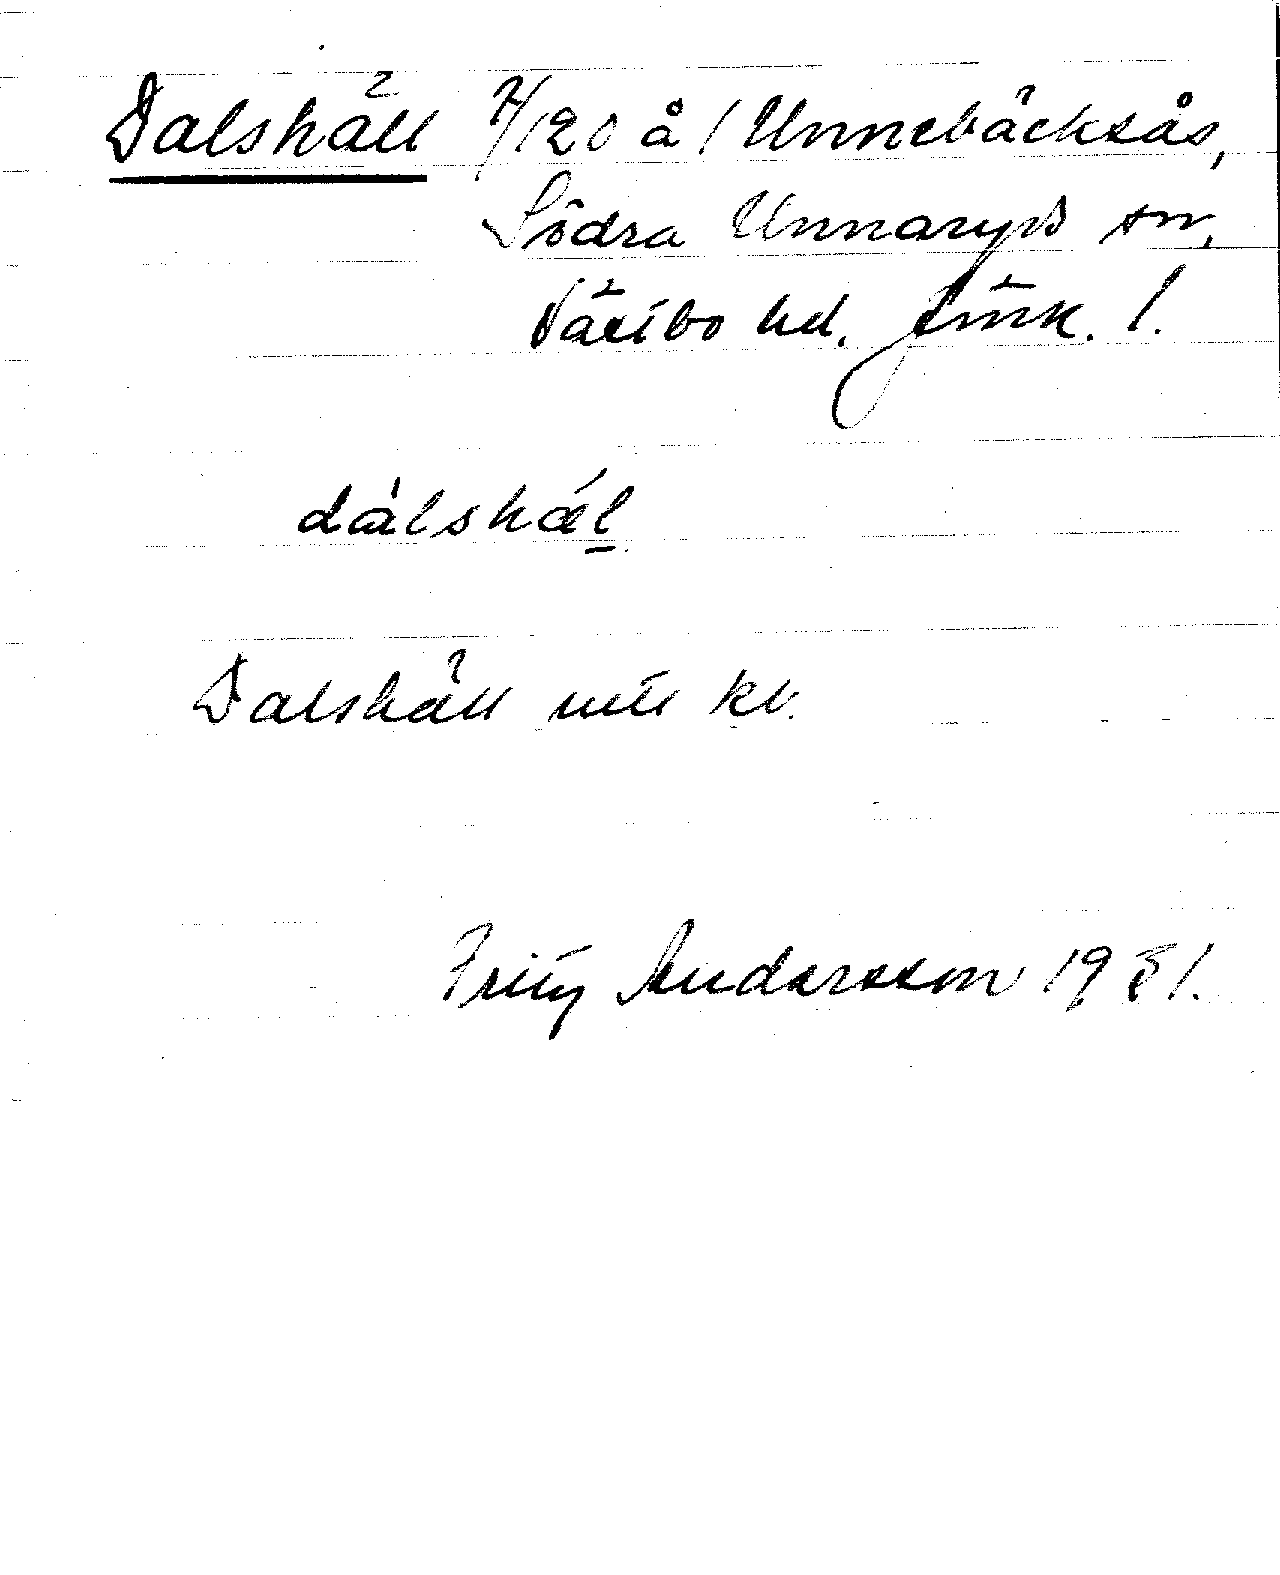 Dalshäll 7/120 å 1 Unnebäcksås,
Södra Unnaryds sn,
Västbo hd. Jönk. l.
dàlshǽl
Dalshäll uttr kv.
Fritz Andersson 1981.